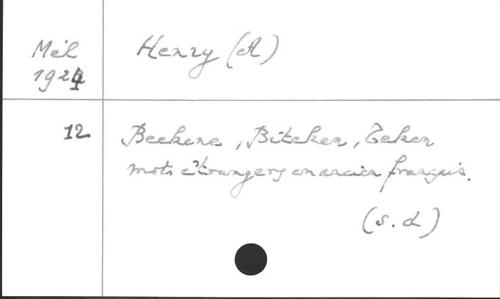 Mél
Henry (A)
1924
12
Beekene, Bitcken, Teken
mots étrangers en ancien français.
(s.d)